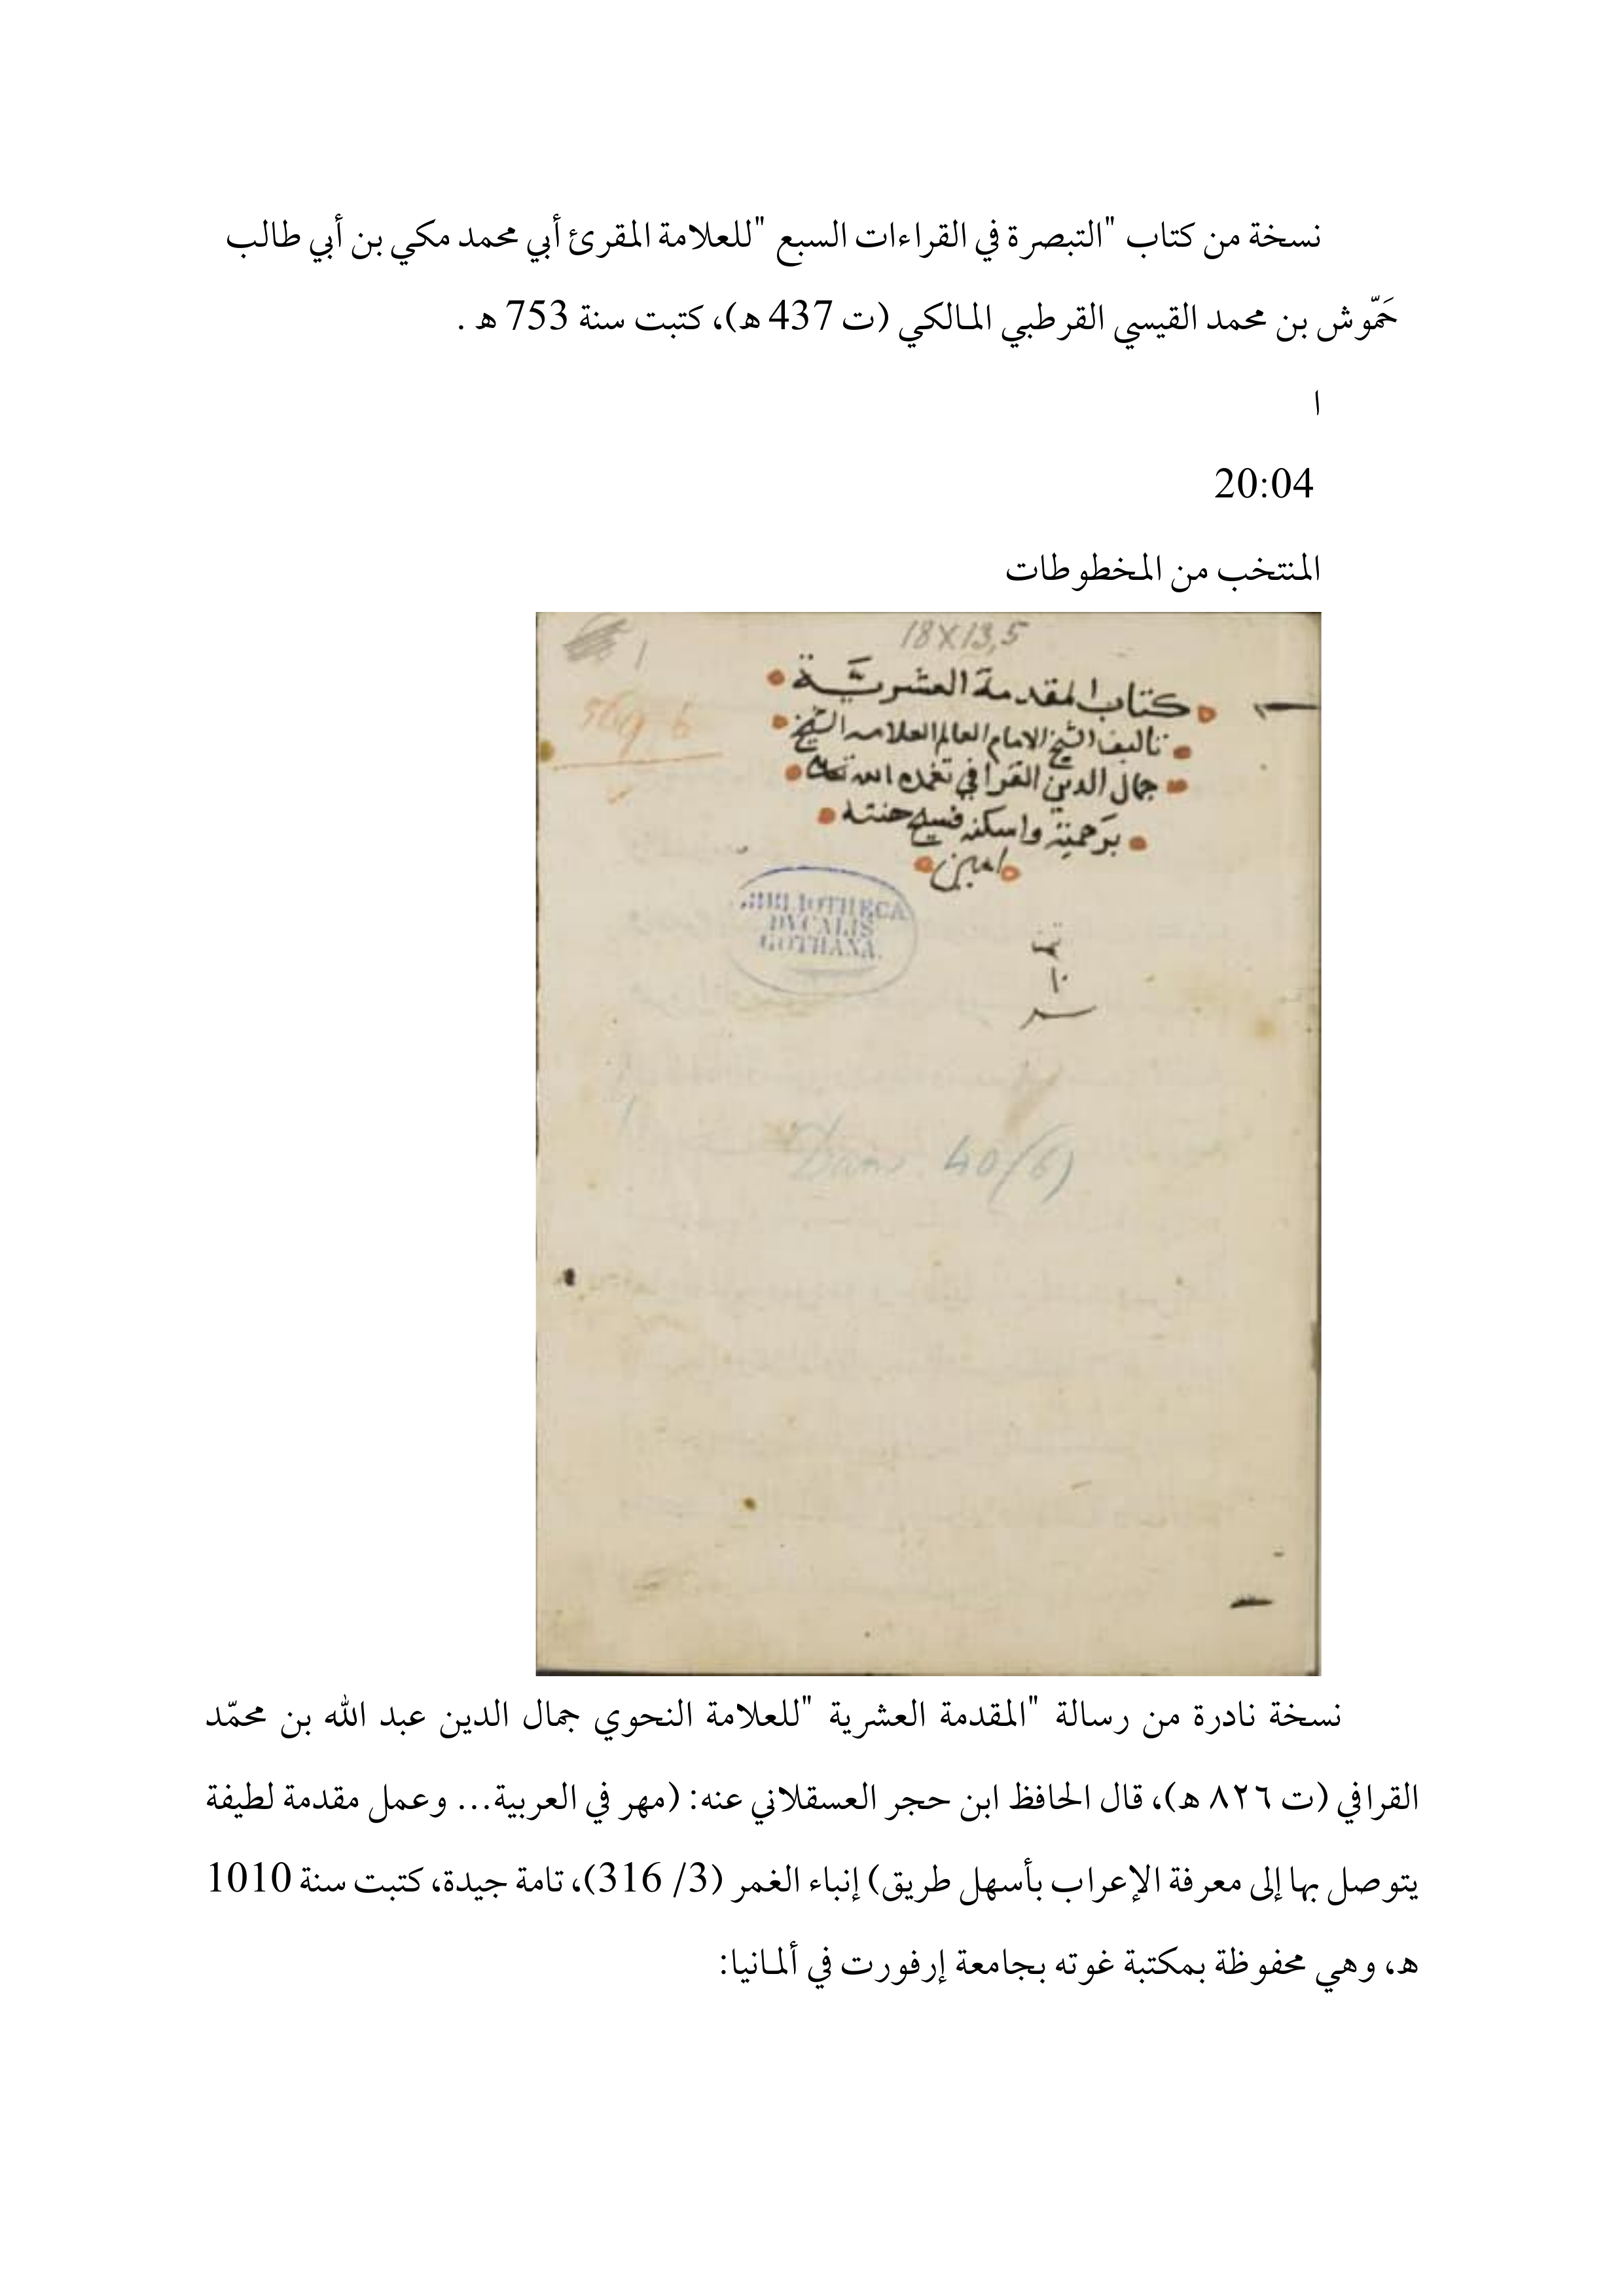 نسخة من كتاب "التبصرة في القراءات السبع "للعلامة المقرئ أبي محمد مكي بن أبي طالب
حَمّوش بن محمد القيسي القرطبي المالكي (ت 437 ه)، كتبت سنة 753 ه .
ا
20:04
المنتخب من المخطوطات
18X13,5
1
كتاب المقدمة العشرية
تاليف الشيخ الامام العالم العلامه الشيخ
جمال الدين القرافي تغمده الله تعالى
برحمته واسكنه فسيح جنته
امين
BIBLIOTHECA
DVCALIS
GOTHANA.
١٠
40(6)
نسخة نادرة من رسالة "المقدمة العشرية "للعلامة النحوي جمال الدين عبد الله بن محمّد
القرافي (ت ٨٢٦ ه)، قال الحافظ ابن حجر العسقلاني عنه: (مهر في العربية... وعمل مقدمة لطيفة
يتوصل بها إلى معرفة الإعراب بأسهل طريق) إنباء الغمر (3/ 316)، تامة جيدة، كتبت سنة 1010
ه، وهي محفوظة بمكتبة غوته بجامعة إرفورت في ألمانيا: